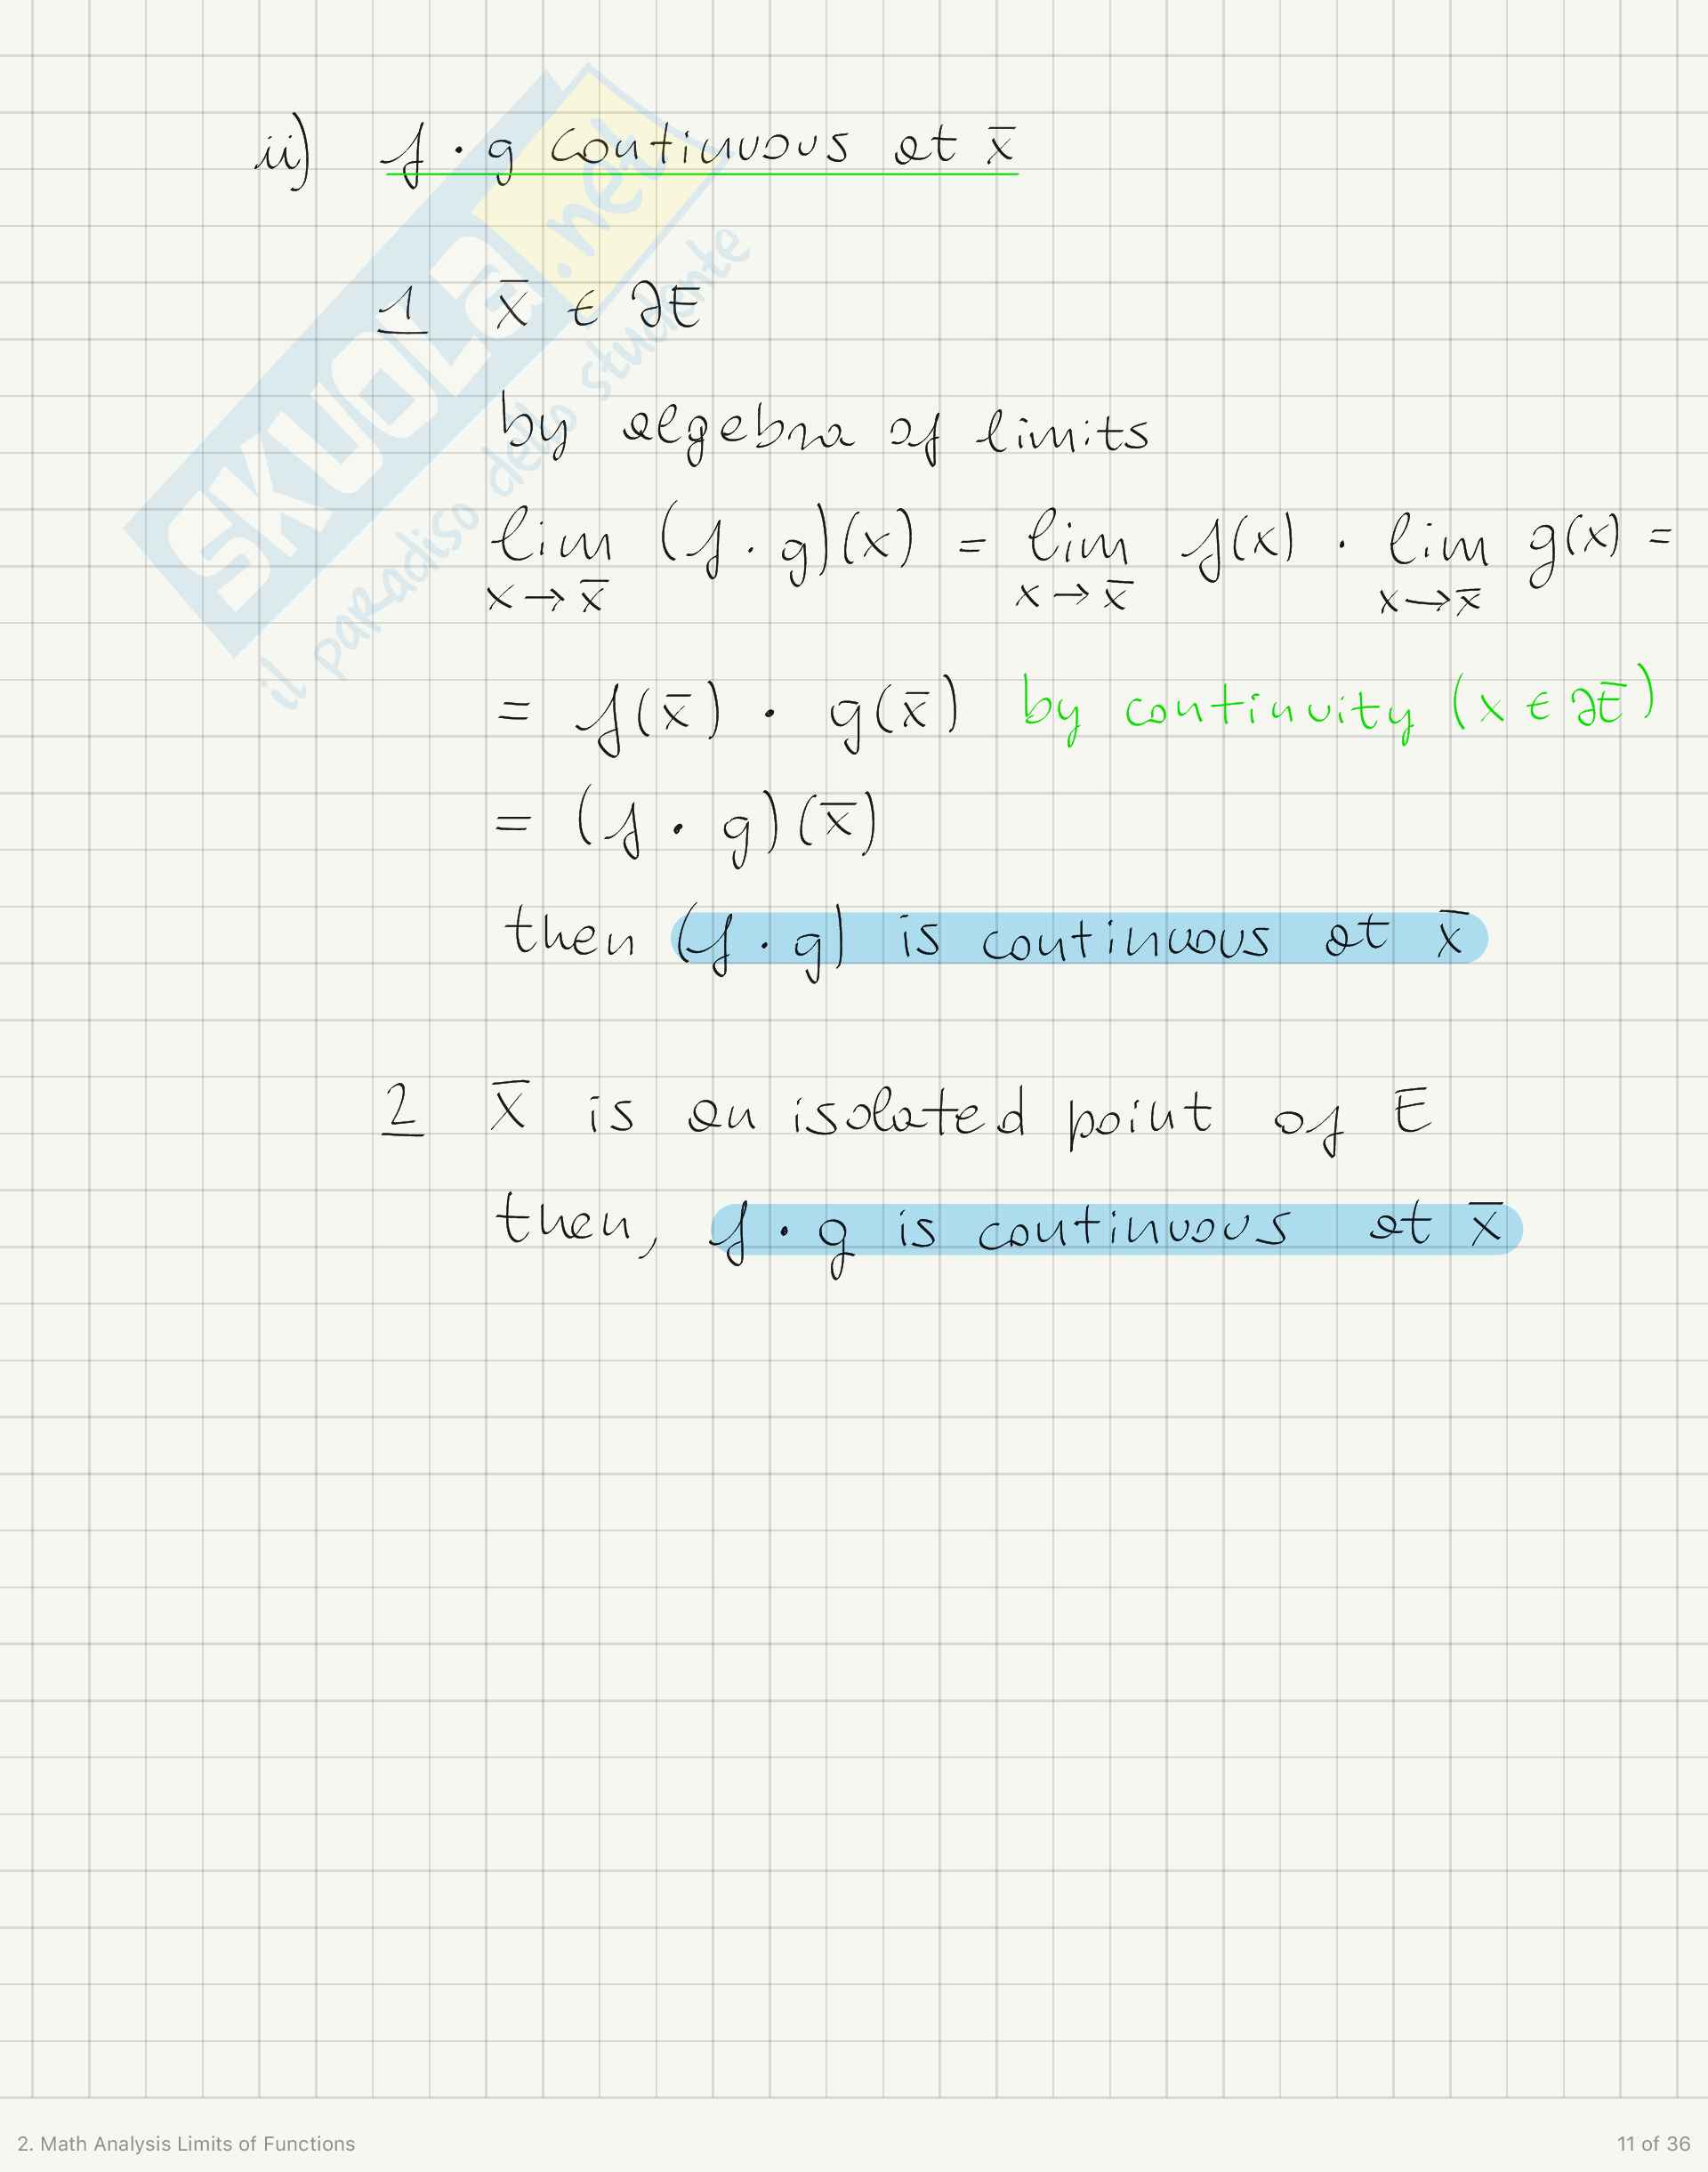 ii) f · g continuous at x̄
1 x̄ ∈ ∂E
by algebra of limits
lim (f · g)(x) = lim f(x) · lim g(x) =
x→x̄ x→x̄ x→x̄
= f(x̄) · g(x̄) by continuity (x ∈ ∂E)
= (f · g)(x̄)
then (f · g) is continuous at x̄
2 x̄ is an isolated point of E
then, f · g is continuous at x̄
SKUOLa.net
il paradiso dello studente
2. Math Analysis Limits of Functions
11 of 36